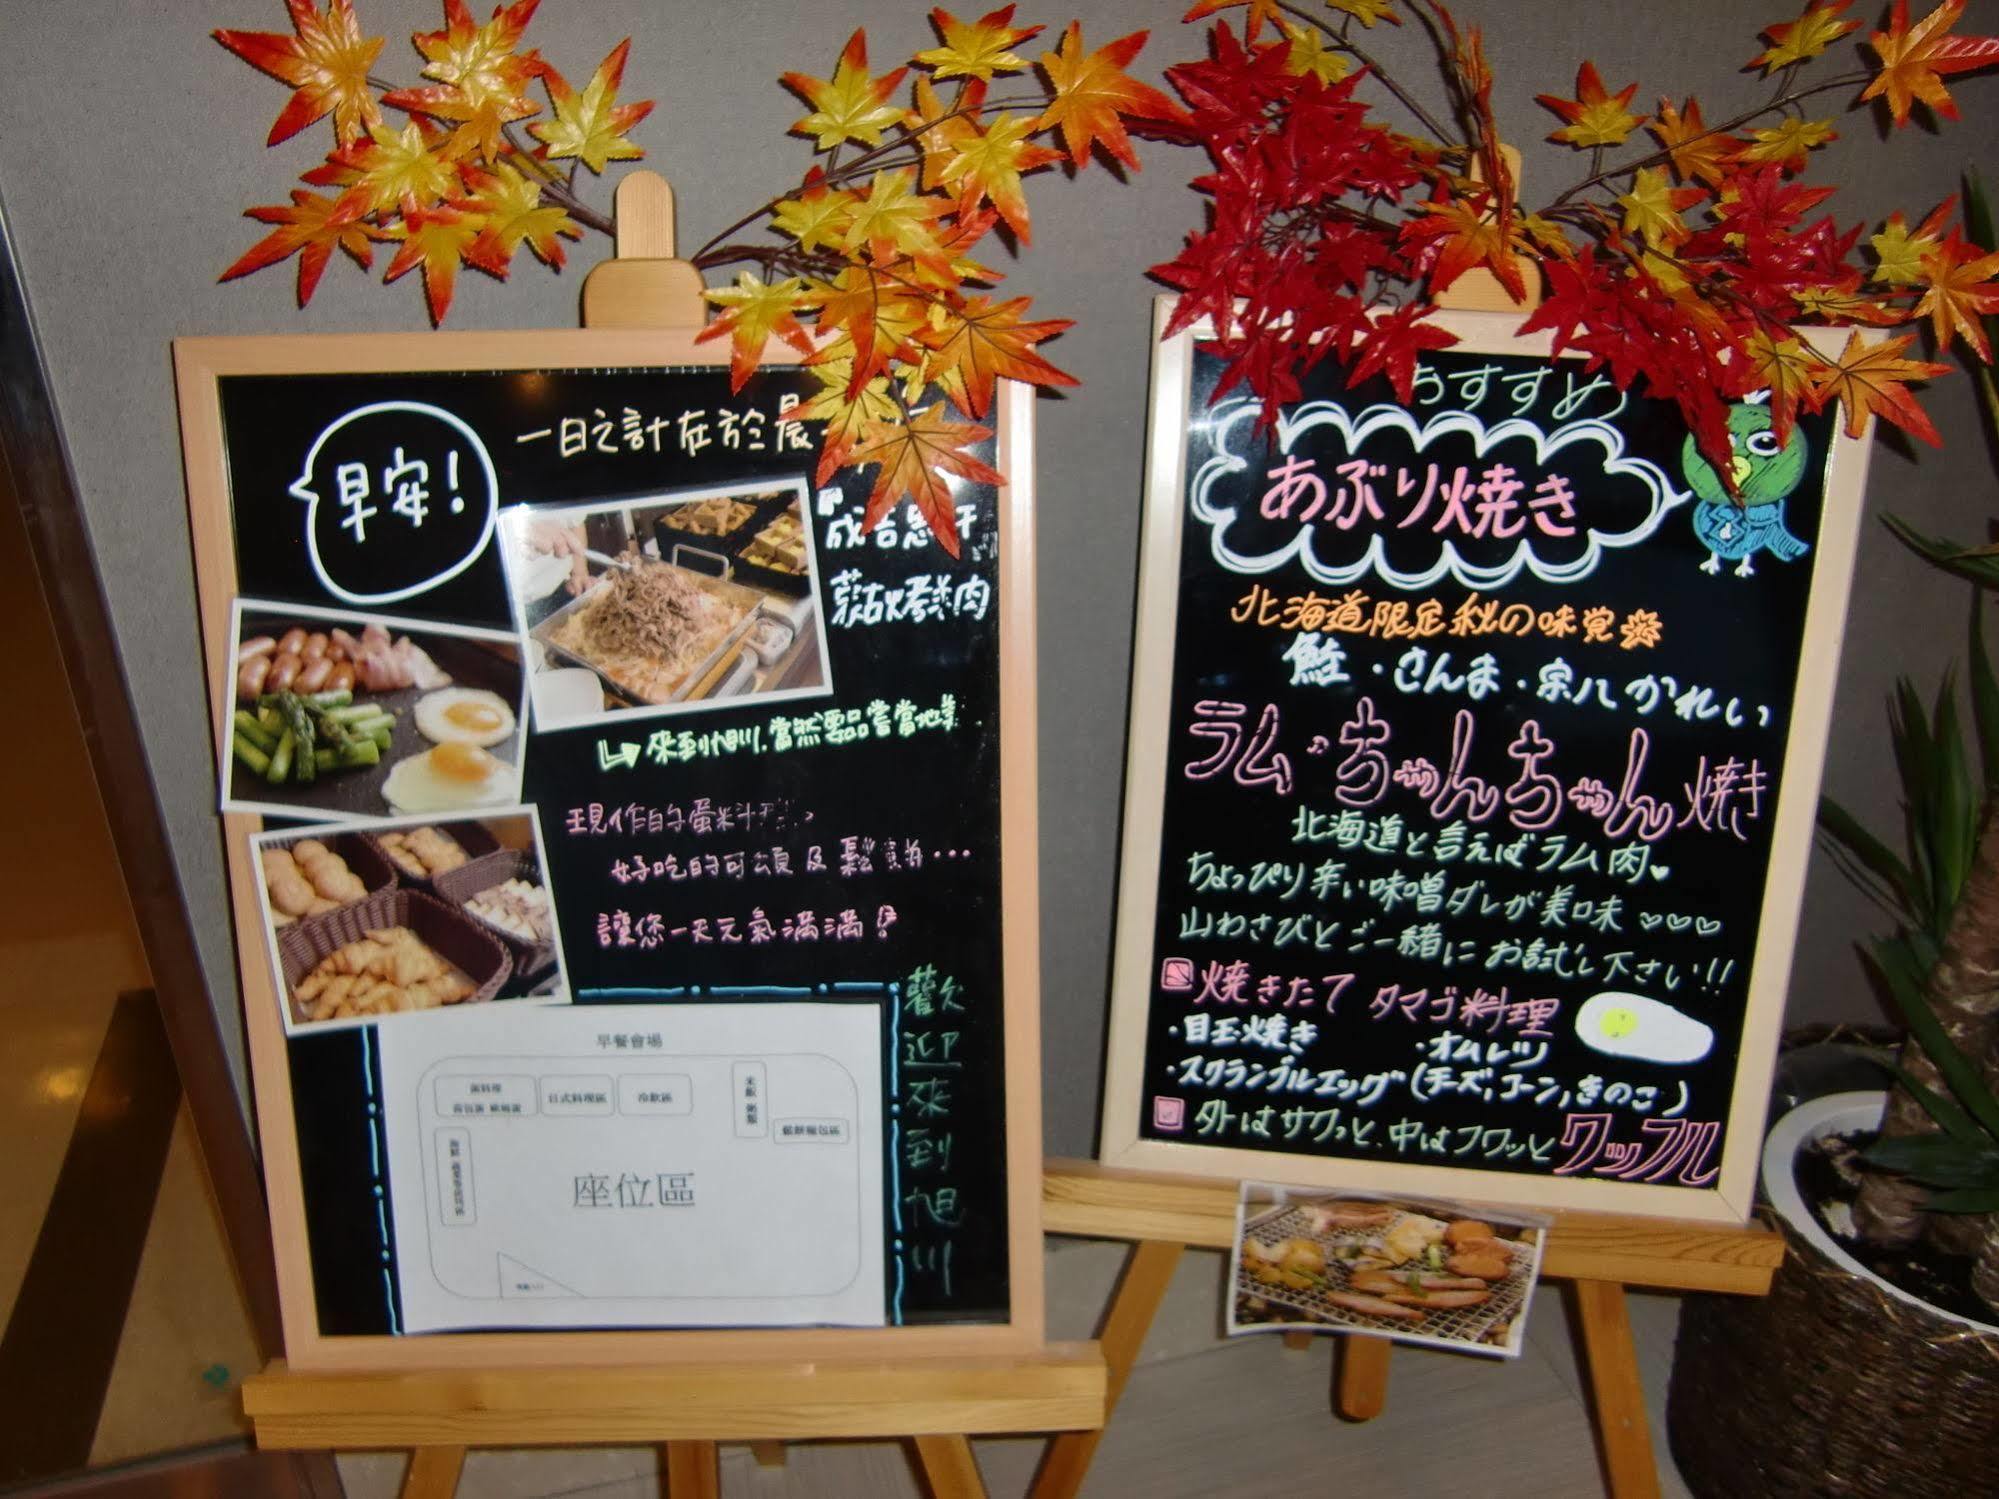 早安!
一日之計在於晨
『成吉思汗
蒙古烤羊肉
來到旭川.當然要品嘗當地羊
現作的蛋料理、
好吃的可頌及鬆餅…
讓您一天元氣滿滿!
歡迎來到旭川
早餐會場
蛋料理
日式料理區
冷飲區
米飯 粥類
鬆餅麵包區
座位區
おすすめ
あぶり焼き
北海道限定秋の味覚
鮭・さんま・宗八かれい
ラム・ちゃんちゃん焼き
北海道と言えばラム肉♥
ちょっぴり辛い味噌ダレが美味♡♡♡
山わさびとご一緒にお試し下さい!!
焼きたて タマゴ料理
・目玉焼き ・オムレツ
・スクランブルエッグ(チーズ,コーン,きのこ)
外はサクっと、中はフワッと ワッフル